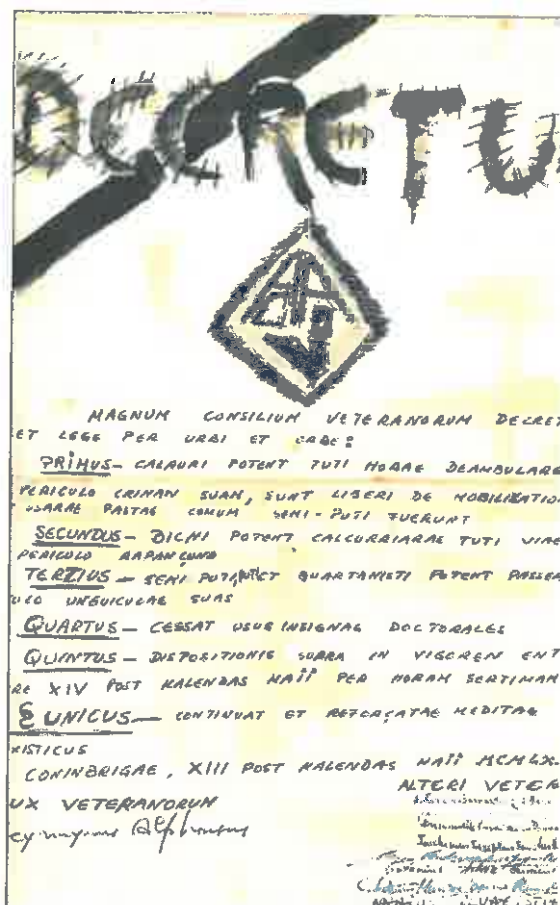 DECRETU
MAGNUM CONSILIUM VETERANORUM DECRET
ET LEGE PER URBI ET ORBE:
PRIMUS - CALAURI POTENT TUTI HORAE DEAMBULARE
PERICULO CRINAN SUAM, SUNT LIBERI DE MOBILIZATIO
USARAE PASTAE COMUM SEMI-PUTI FUERUNT
SECUNDUS - BICHI POTENT CALCURRIARAE TUTI VIAE
PERICULO
TERZIUS - SEMI QUARTANISTI POTENT PASSEA
ULO UNGUICULAE SUAS
QUARTUS - CESSAT USUS INSIGNAE DOCTORALES
QUINTUS - DISPOSITIONIS SUPRA IN VIGOREN ENT
RE XIV POST KALENDAS MAII PER HORAM SERTIMAN
§ UNICUS - CONTINUAT ET REFORÇATAE MEDITAE
XISTICUS
CONINBRIGAE, XIII POST KALENDAS MAII MCMLX
UX VETERANORUM
ALTERI VETER